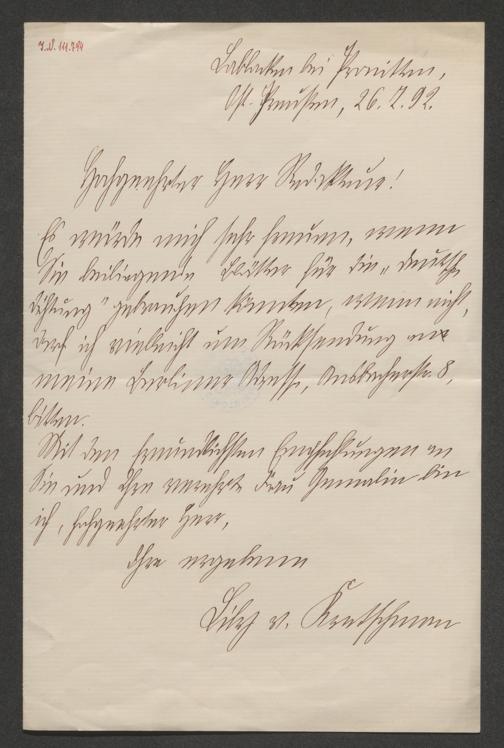 J.N. 111.794
Lablacken bei Pronitten,
Ost-Preußen, 26.7.92.
Hochgeehrter Herr Redakteur!
Es würde mich sehr freuen, wenn
Sie beiliegende Blätter für die „Deutsche
Dichtung" gebrauchen könnten, wenn nicht,
darf ich vielleicht um Rücksendung an
meine Berliner Adresse, Ansbacherstr. 8,
bitten.
Mit den freundlichsten Empfehlungen an
Sie und Ihre verehrte Frau Gemalin bin
ich, hochgeehrter Herr,
Ihre ergebene
Lily v. Kretschman